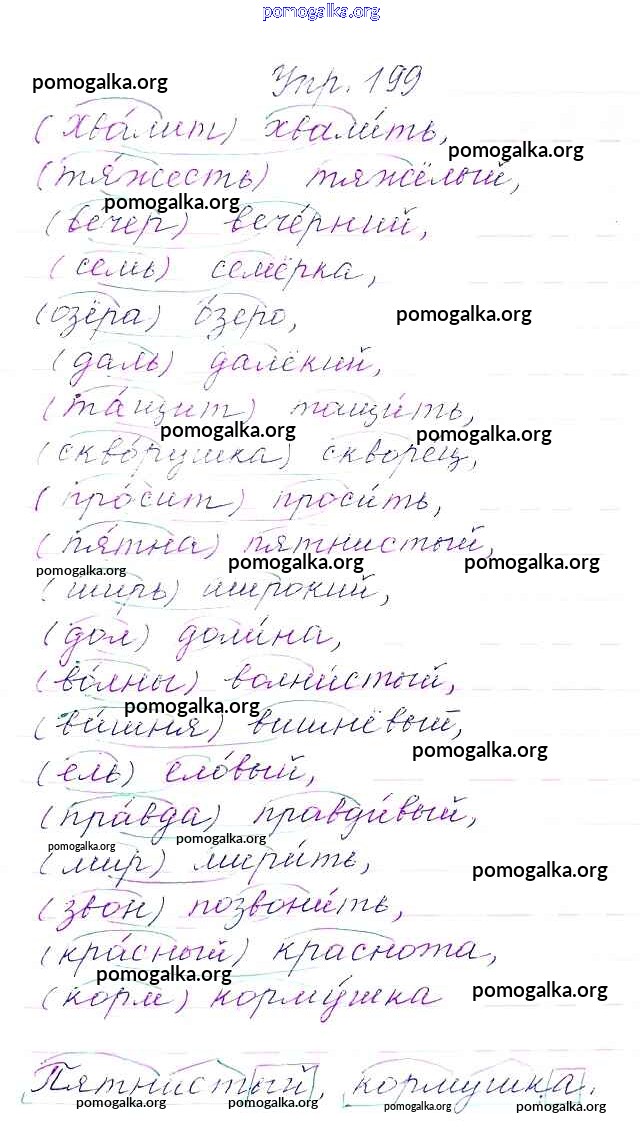 pomogalka.org
Упр. 199
pomogalka.org
(хва́лит) хвали́ть,
pomogalka.org
(тя́жесть) тяжёлый,
pomogalka.org
(ве́чер) вече́рний,
(семь) семёрка,
(озёра) о́зеро,
pomogalka.org
(даль) далёкий,
(та́щит) тащи́ть,
pomogalka.org pomogalka.org
(скво́рушка) скворец,
(про́сит) проси́ть,
(пя́тна) пятнистый,
pomogalka.org pomogalka.org pomogalka.org
(ширь) широкий,
(дол) доли́на,
(во́лны) волни́стый,
pomogalka.org
(ви́шня) вишнёвый,
pomogalka.org
(ель) ело́вый,
(пра́вда) правди́вый,
pomogalka.org pomogalka.org
(мир) мири́ть,
pomogalka.org
(звон) позвони́ть,
(кра́сный) краснота,
pomogalka.org
(корм) корму́шка
pomogalka.org
Пятнистый, кормушка.
pomogalka.org pomogalka.org pomogalka.org pomogalka.org